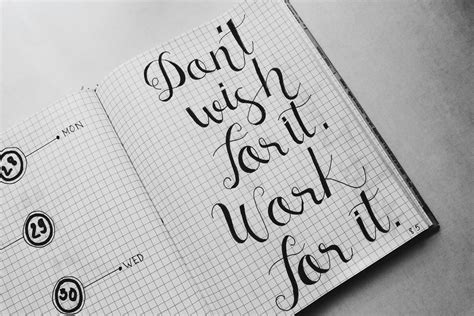 MON
28
29
WED
30
Don't
wish
for it.
Work
for it.